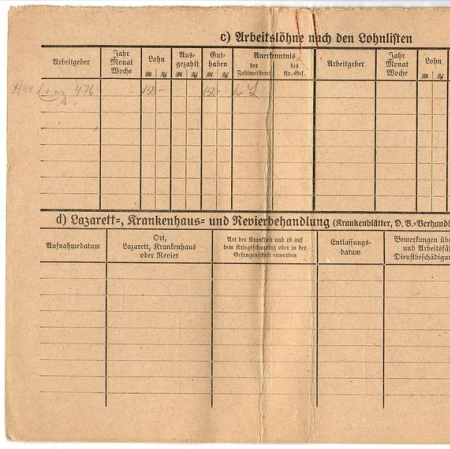 c) Arbeitslöhne nach den Lohnlisten
Arbeitgeber
Jahr
Monat
Woche
Lohn
Aus-
gezahlt
Gut-
haben
Anerkenntnis
der
Zahlmeisterei
des
Kr.-Gef.
Arbeitgeber
Jahr
Monat
Woche
Lohn
ℛℳ ₰ ℛℳ ₰ ℛℳ ₰ ℛℳ ₰
476 150 – 150 –
d) Lazarett-, Krankenhaus- und Revierbehandlung (Krankenblätter, D. B.-Verhandl
Aufnahmedatum
Ort,
Lazarett, Krankenhaus
oder Revier
Art der Krankheit und ob auf
dem Kriegsschauplatz oder in der
Gefangenschaft erworben
Entlassungs-
datum
Bemerkungen üb
und Arbeitsfä
Dienstbeschädigun